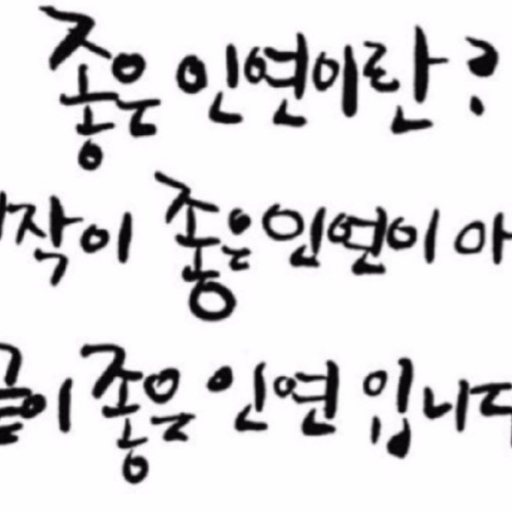 좋은 인연이란?
시작이 좋은 인연이 아
끝이 좋은 인연 입니다